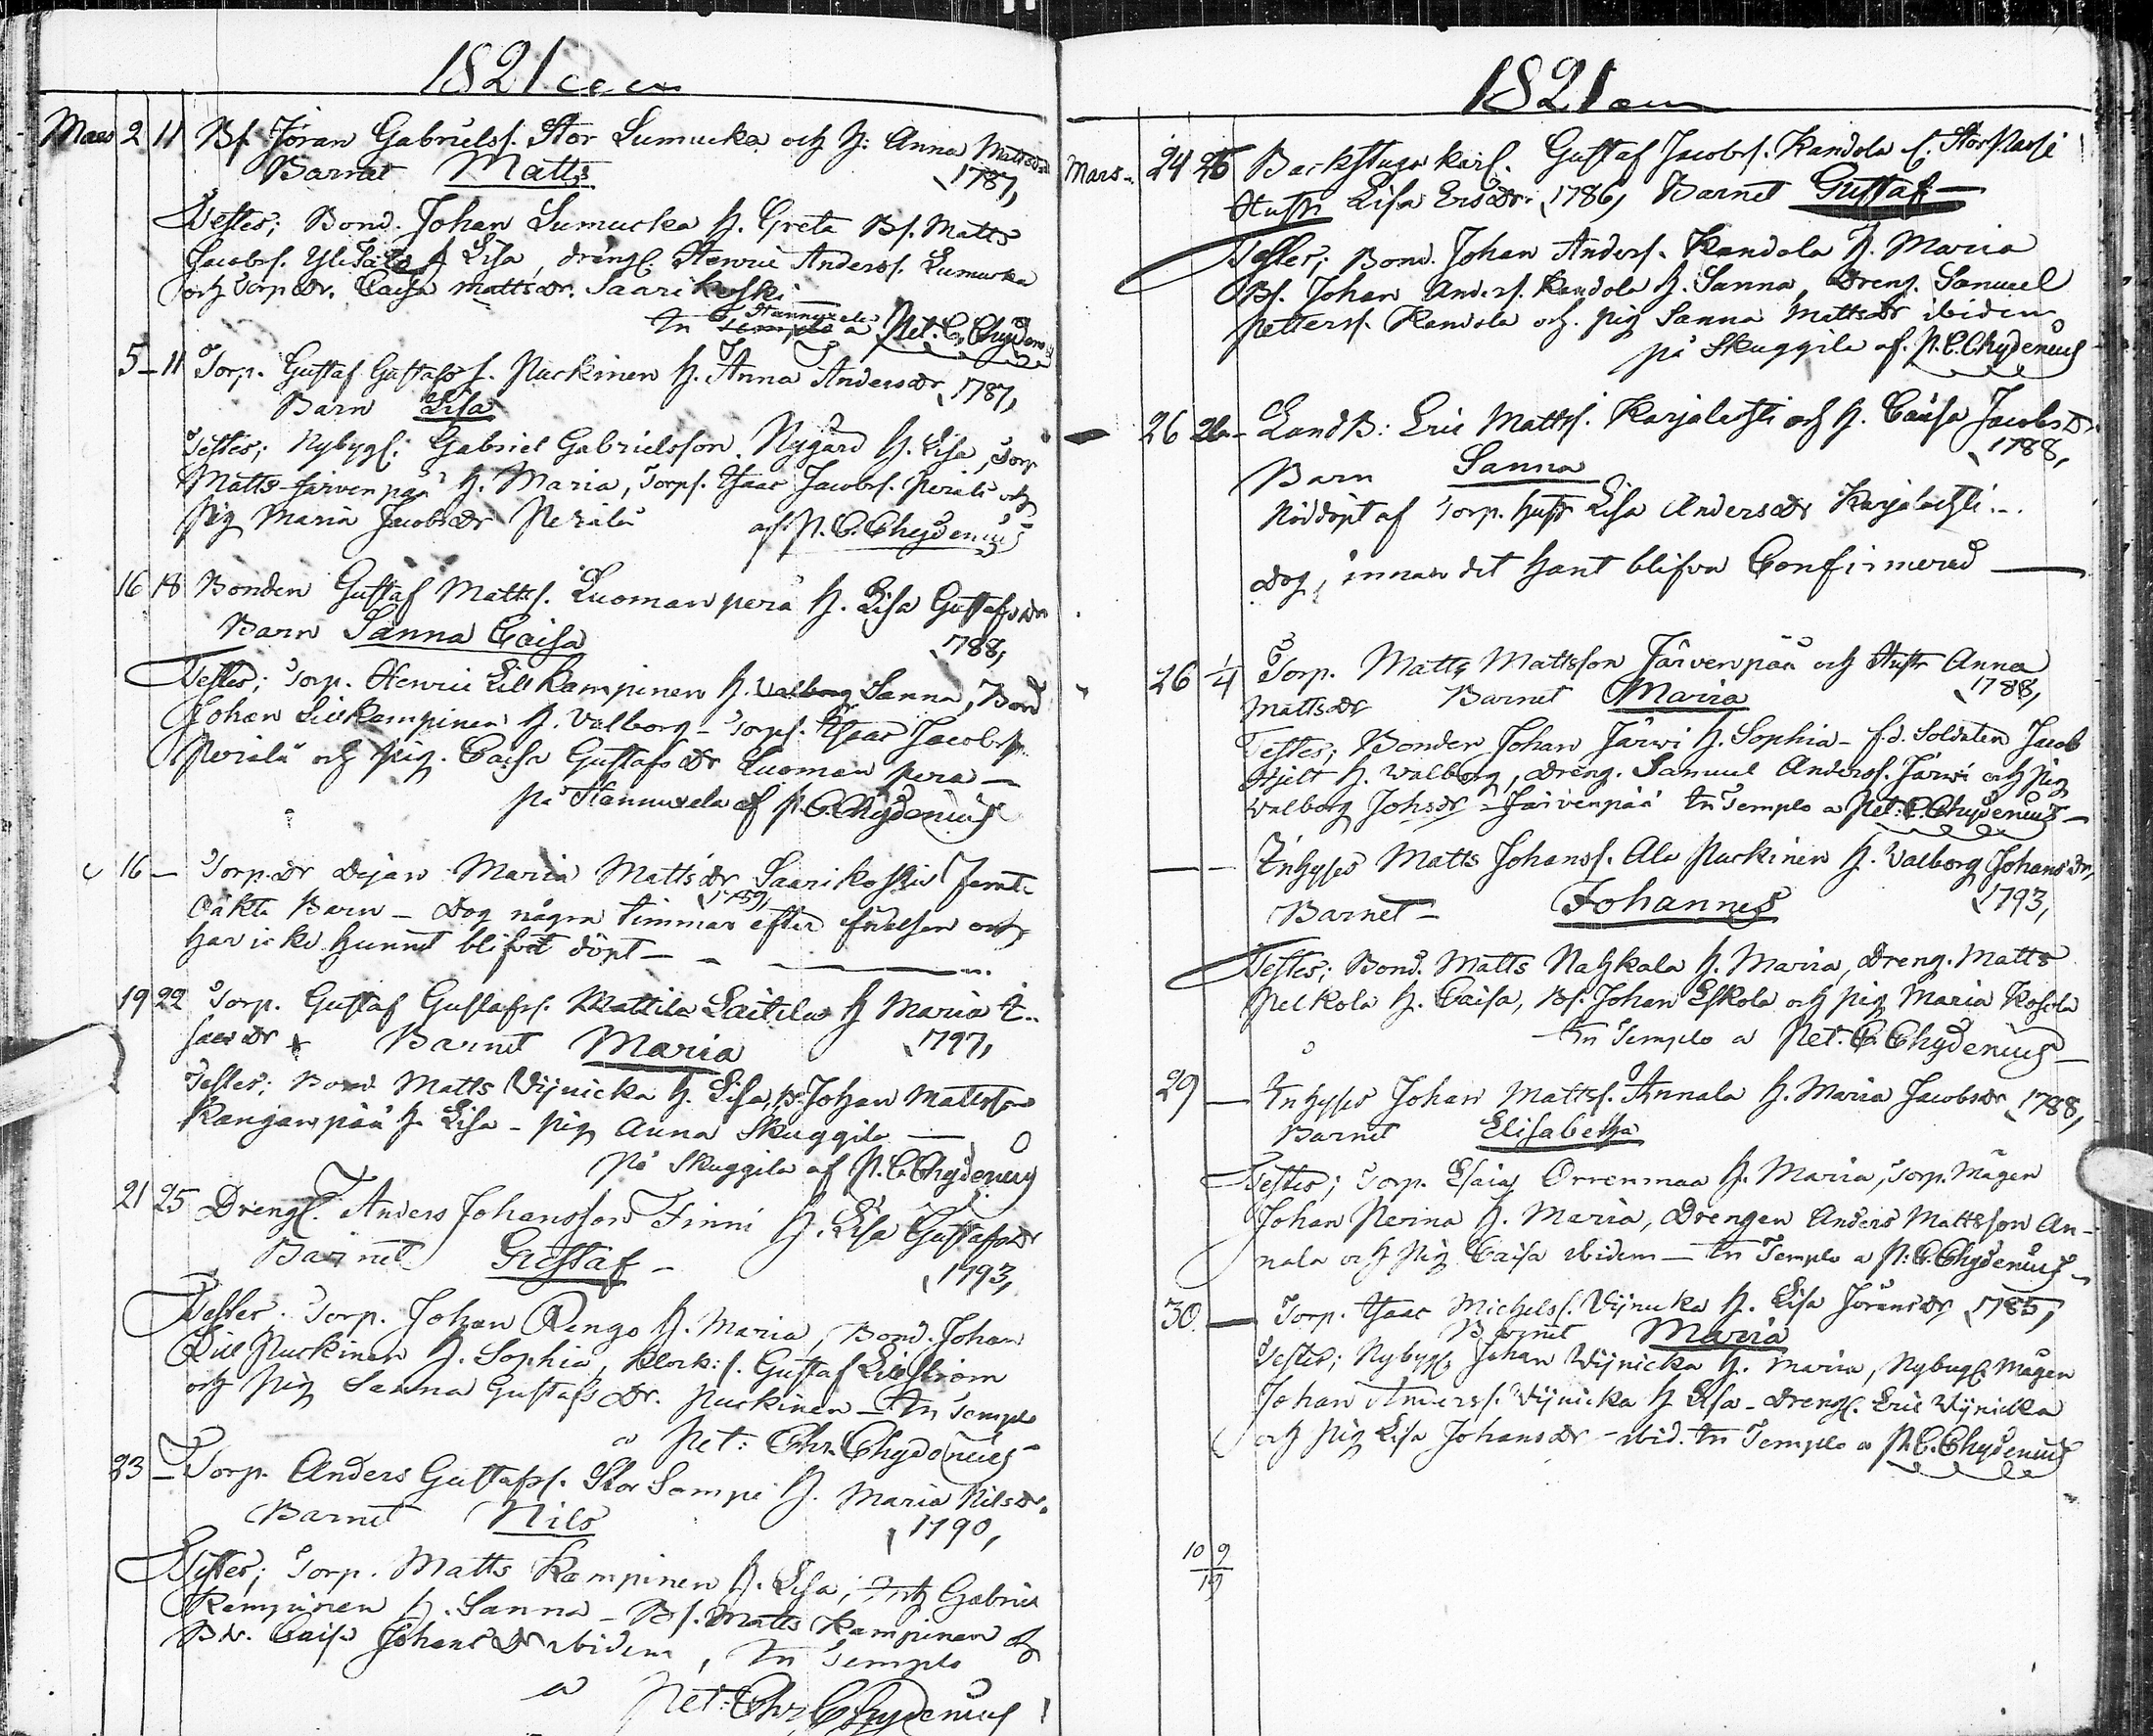 1821
Mars 2 11 Bs. Jöran Gabrielss. Stor Lumucka och h: Anna Mattsdr
Barnet Matts 1787,
Testes; Bond. Johan Lumucka h. Greta Bs. Matts
Jacobss. Ylitalo h Lisa, drängs. Henric Anderss. Lumucka
och Torp dr. Caisa Mattsdr. Saarikoski
Hannuxela
In Templo a Pet. C. Chydenius
5 - 11 Torp. Gustaf Gustafss. Puckinen h. Anna Andersdr 1787,
Barn Lisa
Testes; Nybygg. Gabriel Gabrielsson Nygård h. Lisa, Torp
Matts Järvenpää h. Maria, Torps. Isaac Jacobss. Perälä och
Pig Maria Jacobsdr Perälä af P. C. Chydenius
16 18 Bonden Gustaf Matts. Luomanperä h. Lisa Gustafsdr
Barn Sanna Caisa 1788,
Testes; Torp. Henric Lill Kampinen h. Valborg Sanna, Bond
Johan Lill Kampinen h. Valborg - Torps. Isaac Jacobss
Perälä och pig. Caisa Gustafsdr Luomanpera -
på Hannuxela af P. C. Chydenius
16 - Torp. Dr Dejan Maria Mattsdr Saarikoski femte
1789,
Oäkta Barn - Dog några timmar efter födelsen och
har icke hunnit blifvit döpt - -
19 22 Torp. Gustaf Gustafss. Mattila Laitila h Maria I..
sacsdr Barnet Maria 1797,
Testes; Bond Matts Wijnicka h. Lisa, Bs. Johan Mattsson
Kanganpää h. Lisa - pig Anna Skuggila -
på Skuggila af P. C. Chydenius
21 25 Drengs. Anders Johansson Finni h. Lisa Gustafsdr
Barnet Gustaf - 1793,
Testes. Torp. Johan Rengo h. Maria, Bond. Johan
Lill Puckinen h. Sophia, Klock: s. Gustaf Lillström
och pig Sanna Gustafs Dr. Puckinen - In Templo
a Pet: Chr. Chydenius
23 - Torp. Anders Gustafss. Stor Sompi h. Maria Nilsdr.
Barnet Nils 1790,
Testes; Torp. Matts Kampinen h. Lisa, Inh Gabriel
Kampinen h. Sanna - Bs. Matts Kampinen och
B dr. Caisa Johansdr ibidem, In Templo
a Pet: Chr. Chydenius
1821
Mars - 24 25 Backstuga karl. Gustaf Jacobss. Kandola l. Stor Passi
Hustr Lisa Ersdr. 1786, Barnet Gustaf -
Testes; Bond. Johan Anders. Kandola h. Maria
Bs. Johan Anders. Kandola h. Sanna, Dreng. Samuel
Petterss. Kandola och. pig Sanna Mattsdr ibidem
på Skuggila af. P. C. Chydenius
26 26 - Land B: Eric Mattss. Karjalachti och h. Caisa Jacobsdr.
1788,
Barn Sanna
Nöddöpt af Torp. hustr Lisa Andersdr Karjalachti . - .
dog, innan det hant blifva Confirmerad -
26 1/4 Torp. Matts Mattsson Järvenpää och Hustr Anna
Mattsdr Barnet Maria 1788,
Testes; Bonden Johan Järwi h. Sophia - f.d. Soldaten Jacob
Hjelt h. Walborg, dreng. Samuel Anderss. Järwi och pig
Valborg Johsdr - Järvenpää In Templo a Pet: C. Chydenius -
- - Inhyses Matts Johanss. Ala Puckinen h. Valborg Johansdr,
Barnet - Johannes 1793,
Testes; Bond. Matts Nahkala h. Maria, Dreng. Matts
Pelkola h. Caisa, Bs. Johan Eskola och pig Maria Kosola
In Templo a Pet. C. Chydenius -
29 - Inhyses Johan Mattss. Annala h. Maria Jacobsdr 1788,
Barnet Elisabetha
Testes; Torp. Esaias Orrenmaa h. Maria, Torp. Mågen
Johan Perina h. Maria, Drengen Anders Mattsson An-
nala och Pig Caisa ibidem - In Templo a P: C. Chydenius -
30 - Torp. Isaac Michelss. Vijnicka h. Lisa Jöransdr 1785,
Barnet Maria
Testes; Nybygg Johan Wijnicka h. Maria, Nybygg. Mågen
Johan Anderss. Vijnicka h Lisa - Drengs. Eric Wijnicka
och Pig Lisa Johansdr - ibid. In Templo a P. C. Chydenius
10 9
19